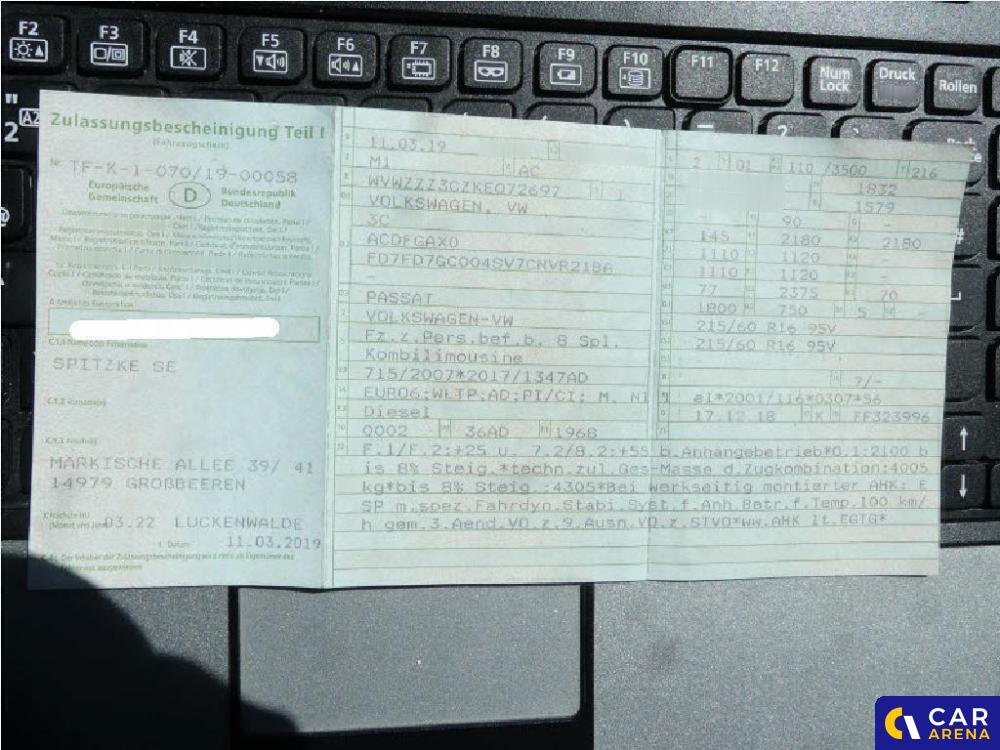 F2
F3
F4
F5
F6
F7
F8
F9
F10
F11
F12
Num Lock
Druck
Rollen
Zulassungsbescheinigung Teil I
(Fahrzeugschein)
Nr. TF-K-1-070/19-00058
Europäische Gemeinschaft
D
Bundesrepublik Deutschland
SPITZKE SE
MÄRKISCHE ALLEE 39/ 41
14979 GROßBEEREN
03.22 LUCKENWALDE
11.03.2019
11.03.19
M1 AC
WVWZZZ3CZKE072697 1
VOLKSWAGEN, VW
3C
ACDFGAX0
FD7FD7GC004SV7CNVR218A
-
PASSAT
VOLKSWAGEN-VW
Fz.z.Pers.bef.b. 8 Spl.
Kombilimousine
715/2007*2017/1347AD
EURO6;WLTP;AD;PI/CI; M, N1
Diesel
0002 36AD 1968
2 01 110 /3500 216
1832
1579
90 -
145 2180 2180
1110 1120 -
1110 1120 -
77 2375 70
1800 750 5 -
215/60 R16 95V
215/60 R16 95V
-
7/-
e1*2001/116*0307*56
17.12.18 K FF323996
F.1/F.2:+25 u. 7.2/8.2:+55 b.Anhangebetrieb*O.1:2100 b
is 8% Steig.*techn.zul.Ges-Masse d.Zugkombination:4005
kg*bis 8% Steig.:4305*Bei werkseitig montierter AHK: E
SP m.spez.Fahrdyn.Stabi.Syst.f.Anh.Betr.f.Temp.100 km/
h gem.3.Aend.VO.z.9.Ausn.VO.z.STVO*ww.AHK lt.EGTG*
CAR
ARENA